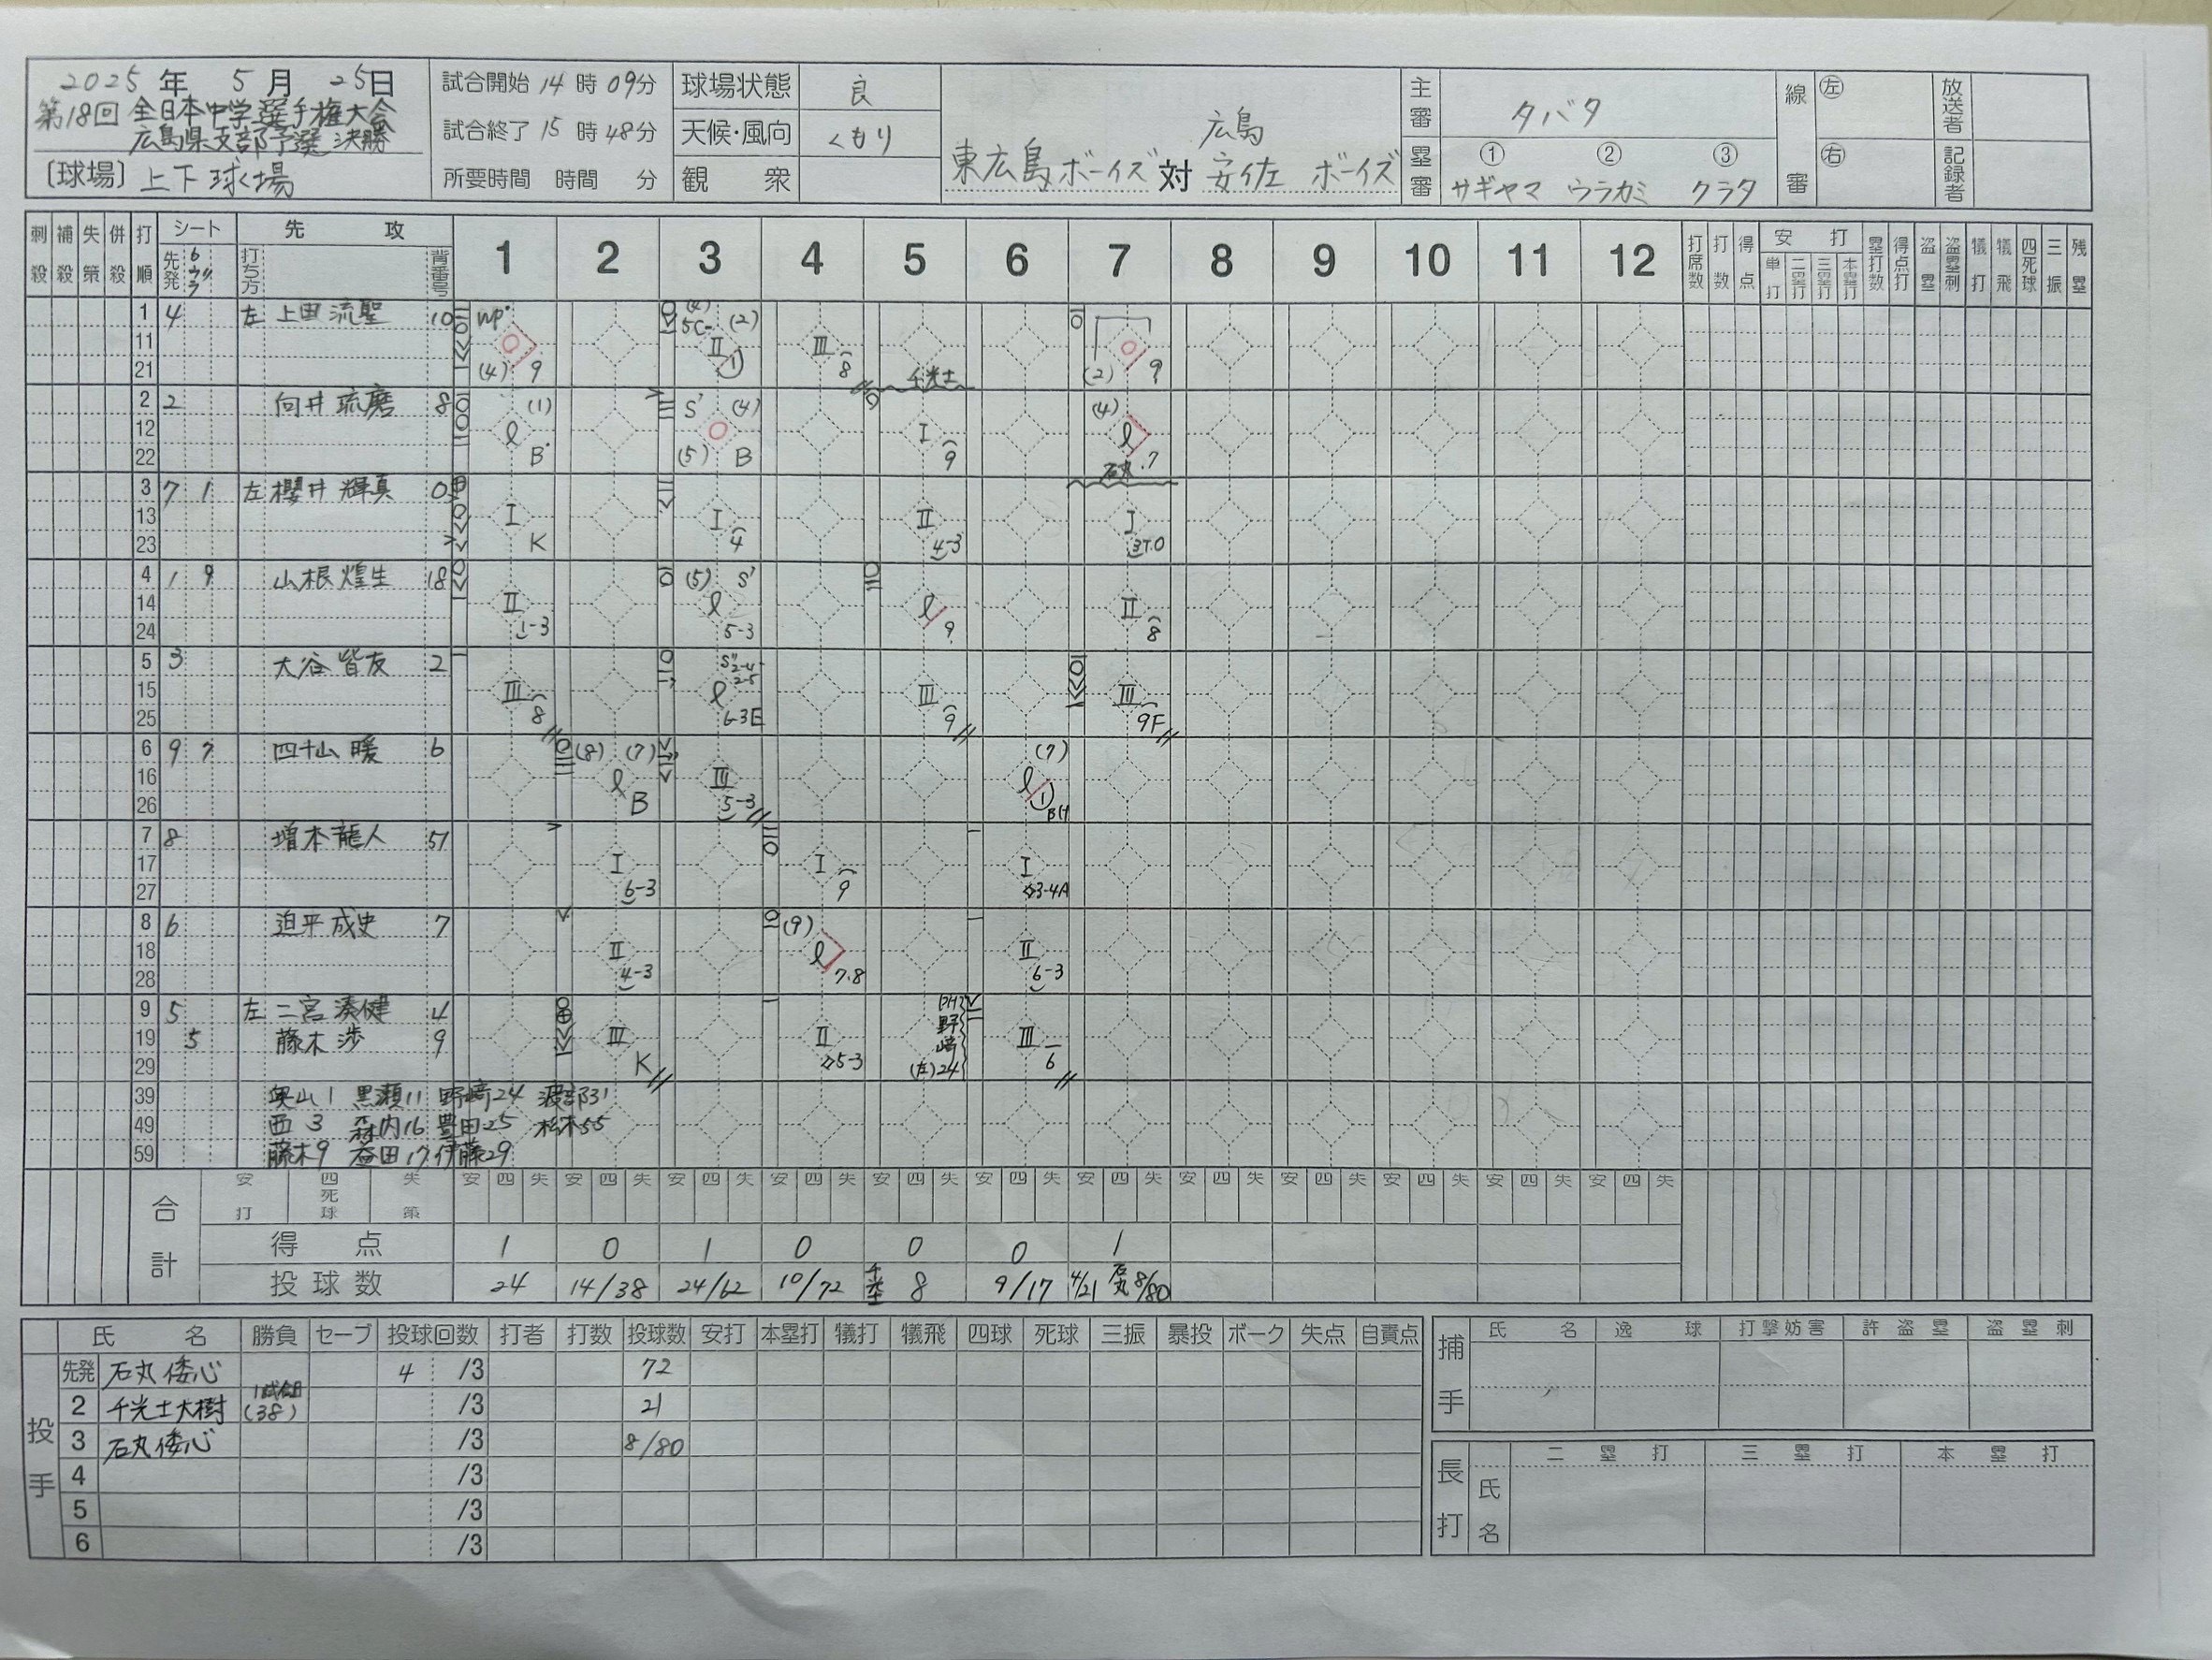 2025年 5月 25日
第18回 全日本中学選手権大会
広島県支部予選 決勝
〔球場〕上下球場
試合開始 14時09分
試合終了 15時48分
所要時間 時間 分
球場状態 良
天候・風向 くもり
観衆
東広島ボーイズ 対 広島安佐 ボーイズ
主審 タバタ
塁審 ① ② ③
サギヤマ ウラカミ クラタ
線審 左 右
放送者
記録者
刺殺 補殺 失策 併殺 打順 シート 先発 先攻 打ち方 背番号 1 2 3 4 5 6 7 8 9 10 11 12 打席数 打数 得点 安打 単打 二塁打 三塁打 本塁打 塁打数 得点打 盗塁 盗塁刺 犠打 犠飛 四死球 三振 残塁
1 11 21 4 左 上田 流聖 10 wp (4) 9 5C- (4) (2) II 1 III 8 (2) 9
千光士
2 12 22 2 向井 琉磨 8 (1) l B S' (4) (5) B I 9 (4) l .7
石丸
3 13 23 7 1 左 櫻井 輝真 0 I K I 4 II 4-3 I 3T.O
4 14 24 1 9 山根 煌生 18 II 1-3 (5) S' l 5-3 l 9 II 8
5 15 25 3 大谷 皆友 2 III 8 S'' 2-4 2-5 l 6-3E III 9 III 9F
6 16 26 9 7 四十山 暖 6 (8) (7) l B III 5-3 (7) l 1 BH
7 17 27 8 増本 龍人 51 I 6-3 I 9 I 3-4A
8 18 28 6 迫平 成史 7 II 4-3 (9) l 7.8 II 6-3
9 19 29 5 左 二宮 湊健 4 III K II 5-3 III 6
5 藤木 渉 9 野崎 (左)24
39 奥山1 黒瀬11 野崎24 渡部31
49 西3 森内16 豊田25 松木55
59 藤木9 益田17 伊藤29
合計 安打 四死球 失策 安 四 失 安 四 失 安 四 失 安 四 失 安 四 失 安 四 失 安 四 失 安 四 失 安 四 失 安 四 失 安 四 失 安 四 失
得点 1 0 1 0 0 0 1
投球数 24 14/38 24/62 10/72 千光士 8 9/17 4/21 石丸 8/80
投手 氏名 勝負 セーブ 投球回数 打者 打数 投球数 安打 本塁打 犠打 犠飛 四球 死球 三振 暴投 ボーク 失点 自責点
先発 石丸 倭心 4 /3 72
2 千光士大樹 1試合目(38) /3 21
3 石丸 倭心 /3 8/80
4 /3
5 /3
6 /3
捕手 氏名 逸球 打撃妨害 許盗塁 盗塁刺
長打 氏名 二塁打 三塁打 本塁打